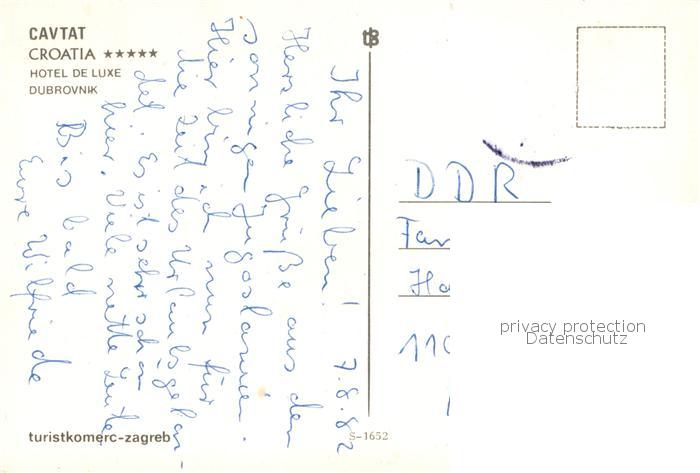 CAVTAT
CROATIA ★★★★★
HOTEL DE LUXE
DUBROVNIK
7.8.82
Ihr Lieben!
Herzliche Grüße aus dem
sonnigen Jugoslawien.
Hier bin ich nun für
die Zeit des Urlaubs gelan-
det. Es ist sehr schön
hier. Viele nette Leute.
Bis bald
Eure Wilfriede
turistkomerc-zagreb
S-1652
DDR
Fam
Ha
110
privacy protection
Datenschutz